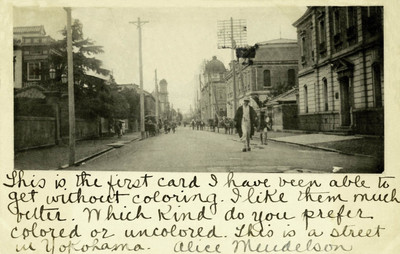 This is the first card I have been able to
get without coloring. I like them much
better. Which kind do you prefer
colored or uncolored. This is a street
in Yokohama. Alice Mendelson